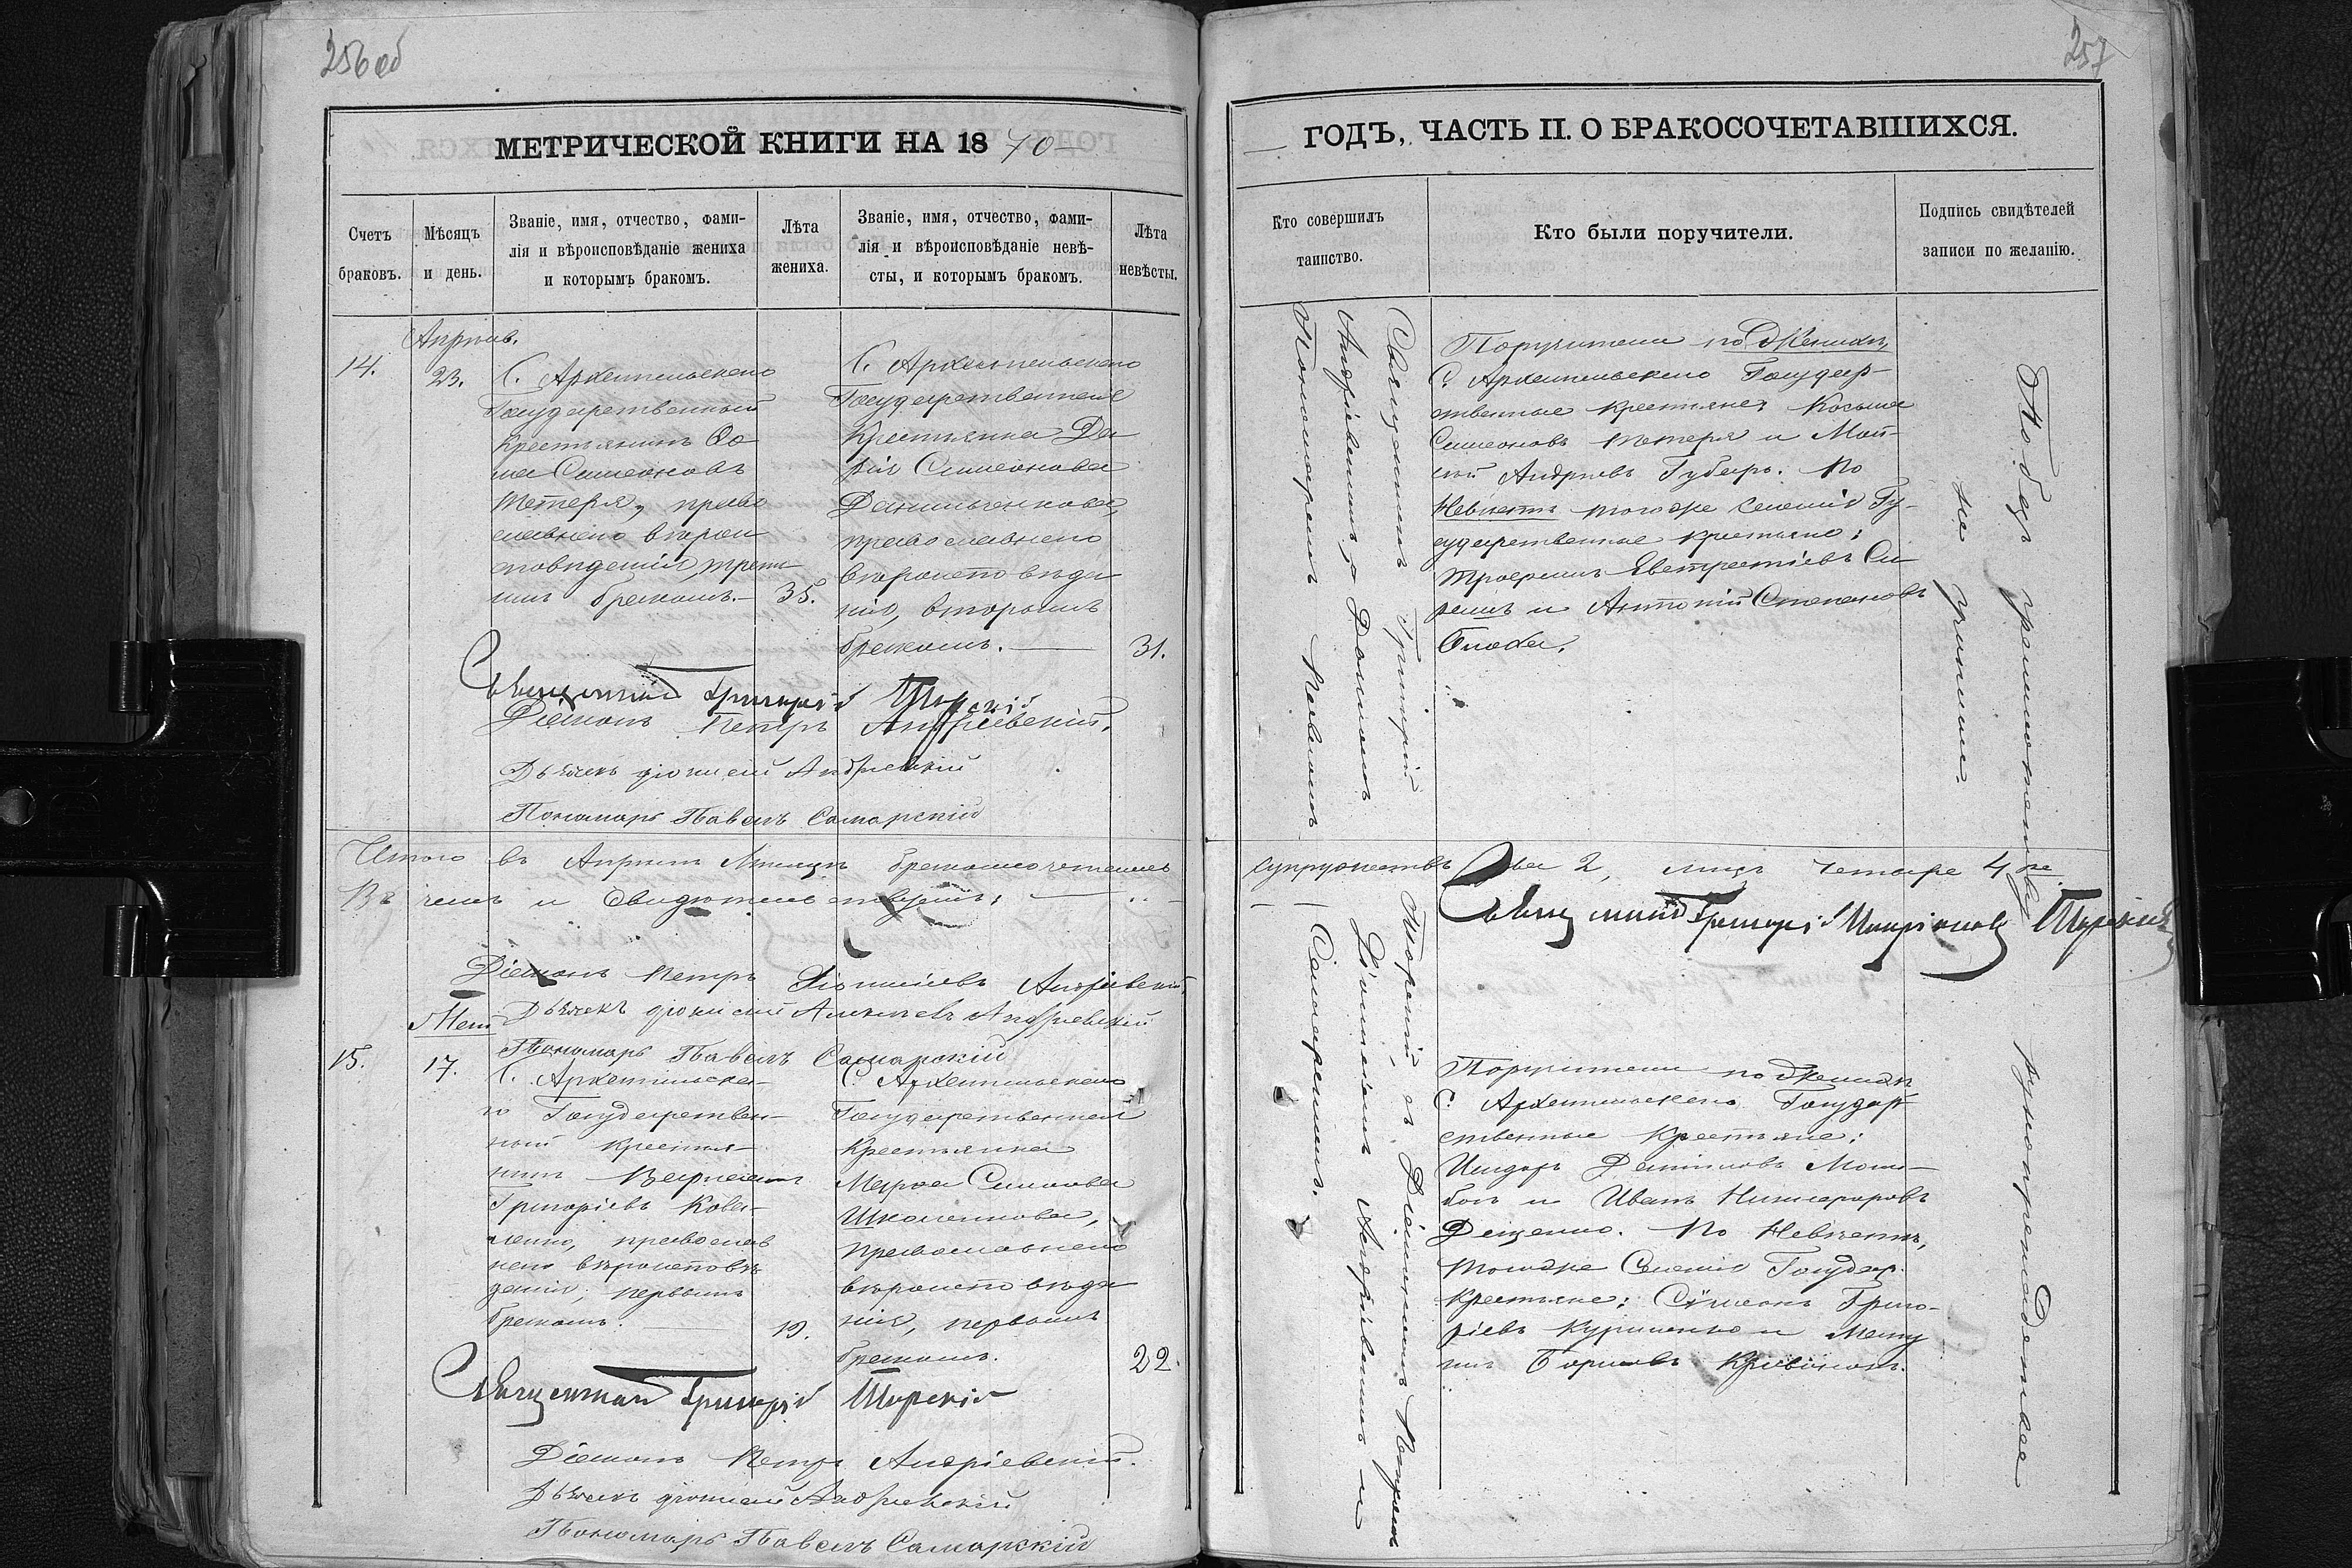 256 об
МЕТРИЧЕСКОЙ КНИГИ НА 1870
Счетъ
браковъ.
Мѣсяцъ
и день.
Званіе, имя, отчество, фами-
лія и вѣроисповѣданіе жениха
и которымъ бракомъ.
Лѣта
жениха.
Званіе, имя, отчество, фами-
лія и вѣроисповѣданіе невѣ-
сты, и которымъ бракомъ.
Лѣта
невѣсты.
Апрѣль.
14.
23.
С. Архангельскаго
Государственный
Крестьянинъ Ѳо
ма Симеоновъ
Тетеря, право
славнаго вѣроис
повѣданія, треть
имъ бракомъ.
35.
С. Архангельскаго
Государственная
Крестьянка Да
рія Симеонова
Данильченкова,
православнаго
вѣроисповѣда
нія, вторымъ
бракомъ.
31.
Священникъ Григорій Торскій
Діаконъ Петръ Андріевскій.
Дьячекъ Діонисій Андріевскій
Пономарь Павелъ Самарскій
Итого въ Апрѣлѣ Мѣсяцѣ бракосочетаній
Въ чемъ и свидѣтельствуемъ:
Діаконъ Петръ Діонисіевъ Андріевскій,
Дьячекъ Діонисій Андріевскій
Пономарь Павелъ Самарскій
Май
15.
17.
С. Архангельска-
го Государствен-
ный крестья-
нинъ
Григоріевъ Кова-
ленко, православ
наго вѣроисповѣ
данія, первымъ
бракомъ.
19.
С. Архангельскаго
Государственная
Крестьянка
Марѳа Симонова
Православнаго
вѣроисповѣда
нія, первымъ
бракомъ.
22.
Священникъ Григорій Торскій
Діаконъ Петръ Андріевскій.
Дьячекъ Діонисій Андріевскій
Пономарь Павелъ Самарскій
257
ГОДЪ, ЧАСТЬ II. О БРАКОСОЧЕТАВШИХСЯ.
Кто совершилъ
таинство.
Кто были поручители.
Подпись свидѣтелей
записи по желанію.
Священникъ Григорій Торскій съ Діакономъ Петромъ
Андріевскимъ, Діонисіемъ Андріевскимъ и
Пономаремъ Павломъ Самарскимъ.
Поручители по Женихѣ,
С. Архангельскаго Государ-
ственные крестьяне: Косьма
Симеоновъ Тетеря и Мои-
сей Андреевъ Губарь. По
Невѣстѣ того же селенія Го-
сударственные крестьяне:
Трофимъ Евстратіевъ
и Антоній Степановъ
За безграмотностью рукоприкладства
не учинили.
супружествъ два 2, лицъ четыре 4
Священникъ Григорій Торскій
Поручители по Женихѣ
С. Архангельскаго Государ
ственные Крестьяне:
и Иванъ Никифоровъ
По Невѣстѣ,
того же Селенія Государ.
Крестьяне: Симеонъ Григо-
ріевъ Куриленко и